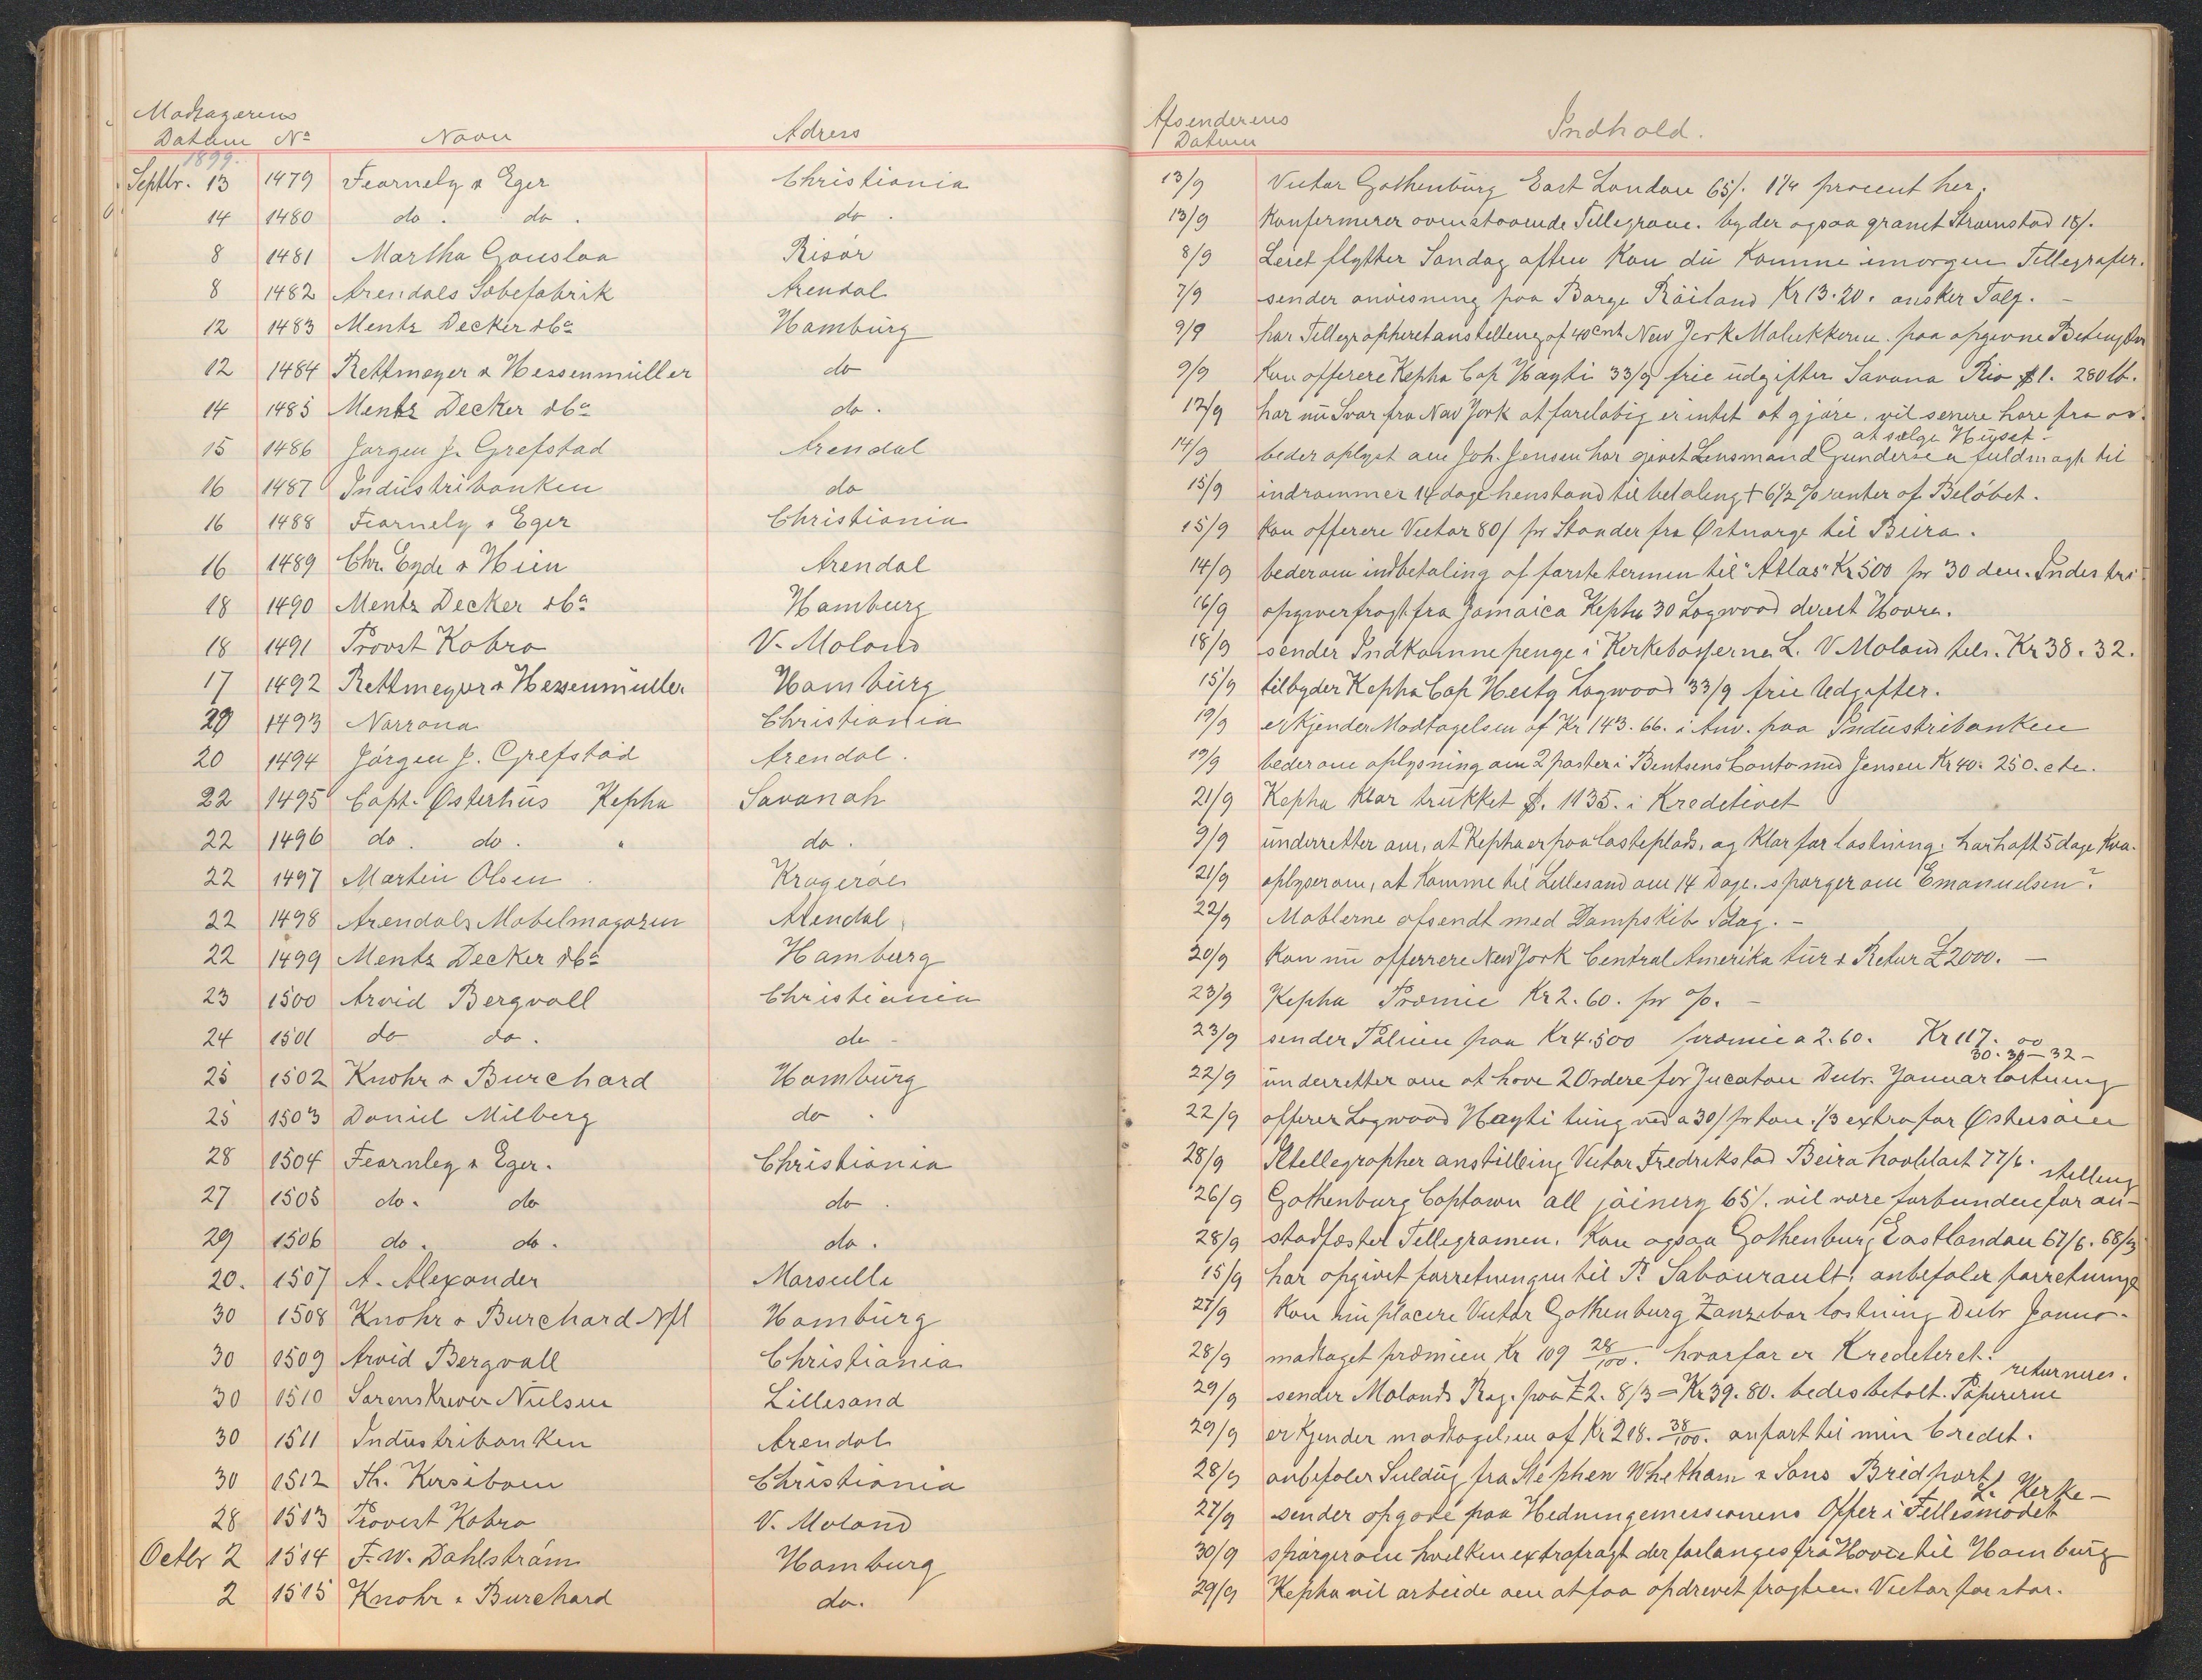 Modtagerens Afsenderens
Datum No Navn Adress Datum Indhold.
1899.
Septbr. 13 1479 Fearnely & Eger Christiania 13/9 Victor Gothenburg East London 65/. 1 1/4 procent her.
14 1480 do. do. do. 13/9 Konfermerer ovenstaaende Tellegram. byder ogsaa granit Strømstad 18/.
8 1481 Martha Gouslaa Risör 8/9 Leret flytter Søndag aften Kan du Komme imorgen Tellegrafer.
8 1482 Arendals Sæbefabrik Arendal 7/9 sender anvisning paa Barge Röiland Kr 13.20. ønsker Talg. -
12 1483 Mentz Decker & Co Hamburg 9/9 har Tellegrapheret anstelleng af 40 cnt New Jork Molukkerne. paa opgivne
12 1484 Rettmeyer & Hessenmüller do 9/9 Kan offerere Kepha Cap Hayti 33/9 frie udgifter Savana Rio $1. 280 lb.
14 1485 Mentz Decker & Co do. 12/9 har nu Svar fra New Jork at foreløbig er intet at gjøre, vil senere høre fra os.
15 1486 Jørgen J. Grefstad Arendal 14/9 beder oplyst om Joh. Jensen har givet Lensmand Gundersen fuldmagt til at sælge Huset -
16 1487 Industribanken do 15/9 indrømmer 14 dage henstand til betaleng + 6 1/2 % renter af Beløbet.
16 1488 Fearnely & Eger Christiania 15/9 Kan offerere Victor 80/ pr Stander fra Østnorge til Beira.
16 1489 Chr. Eyde & Hien Arendal 14/9 beder om indbetaling af første termin til "Atlas" Kr 500 pr 30 den. Industri
18 1490 Mentz Decker & Co Hamburg 16/9 opgiver fragt fra Jamaica Kepha 30 Logwood derect Havre.
18 1491 Provst Kobro V. Moland 18/9 sender Indkomne penge i Kerkebøsserne L. V Moland tels. Kr 38. 32.
17 1492 Rettmeyer & Hessenmüller Hamburg 15/9 tilbyder Kepha Cap Heity Logwood 33/9 frie Udgifter.
20 1493 Norrøna Christiania 19/9 erkjender Modtagelsen af Kr 143. 66. i Anv. paa Industribanken
20 1494 Jörgen J. Grefstad Arendal. 19/9 beder om oplysning om 2 poster i Bentsens Conto med Jensen Kr 40. 250. etc.
22 1495 Capt. Østerhus Kepha Savanah 21/9 Kepha Klar trukket $. 1135. i Kreditivet
22 1496 do. do. " do. 9/9 underretter om, at Kepha er paa lasteplads, og Klar for lastning. har haft 5 dage
22 1497 Martin Olsen. Kragerøe 21/9 oplyser om, at Komme til Lillesand om 14 Dage. spørger om Emanuelsen?
22 1498 Arendals Møbelmagazin Arendal 22/9 Møblerne afsendt med Dampskib Idag. -
22 1499 Mentz Decker & Co Hamburg 20/9 Kan nu offerrere New Jork Central Amerika tur & Retur £2000. -
23 1500 Arvid Bergvall Christiania 23/9 Kepha Præmie Kr 2.60. pr %. -
24 1501 do do. do - 23/9 sender Polisen paa Kr 4.500 præmie a 2.60. Kr 117. 00
25 1502 Knohr & Burchard Hamburg 22/9 underretter om at have 2 Ordere for Jucatan Decbr. Januar lastning 30. 30 - 32 -
25 1503 Daniel Milberg do. 22/9 offerer Logwood Hayti tung ved a 30/ pr ton. 1/3 extra for Østersøen
28 1504 Fearnley & Eger. Christiania 28/9 Iltellegrapher anstilleing Victor Fredrikstad Beira høvllast 77/6.
27 1505 do. do do. 26/9 Gothenburg Captown all joinery 65/. vil være forbunden for anstelleng
29 1506 do. do. do. 28/9 stadfæster Tellegramen. Kan ogsaa Gothenburg East London 67/6. 68/9
20. 1507 A. Alexander Marseille 15/9 har opgivet forretningen til P. Sabourault, anbefaler forretninge
30 1508 Knohr & Burchard Nfl Hamburg 27/9 Kan nu placere Victor Gothenburg Zanzibar lastning Decbr Janua.
30 1509 Arvid Bergvall Christiania 28/9 modtaget præmien Kr 109 28/100. hvorfor er Krediteret.
30 1510 Sorenskriver Nielsen Lillesand 29/9 sender Molands Reg. paa £ 2. 8/3 = Kr 39.80. bedes betalt. Papirerne returneres.
30 1511 Industribanken Arendal 29/9 erkjender modtagelsen af Kr 218. 38/100. anført til min Credit.
30 1512 Th. Kersiboen Christiania 28/9 anbefaler Seildug fra Stephen Whetham & Sons Bridport
28 1513 Provest Kobro V. Moland 27/9 sender opgave paa Hedningemissionens Offer i Fellesmødet L. Kerke -
Octbr 2 1514 F. W. Dahlström Hamburg 30/9 spørger om hvelken extrafragt der forlanges fra Havre til Hamburg
2 1515 Knohr & Burchard do. 29/9 Kepha vil arbeide om at faa opdrevet fragten. Victor for stor.